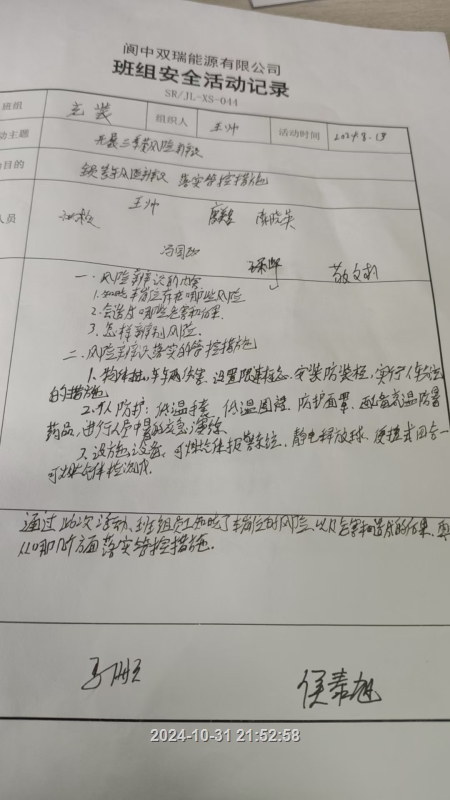 阆中双瑞能源有限公司
班组安全活动记录
SR/JL-XS-044
班组 充装 组织人 王帅 活动时间 2024.8.19
动主题 开展三季度风险辨识
目的 锁定风险辨识 落实管控措施
人员 王帅 陈晓英
冯国 敬文
一.风险辨识的内容
1.知晓本岗位存在哪些风险
2.会造成哪些危害和后果.
3.怎样辨别风险.
二.风险辨识落实的管控措施
1.物体打击.车辆伤害.设置限速标志.安装防装柱.实行人车分流
的措施
2.个人防护:低温手套 低温围裙.防护面罩.配备高温防暑
药品,进行人员中暑的应急演练.
3.设施设备:可燃气体报警系统.静电释放球.便携式四合一
可燃气体检测仪.
通过此次活动,班组员工知晓了本岗位的风险,以及危害和造成的后果,
从哪几个方面落实管控措施.
侯春旭
2024-10-31 21:52:58